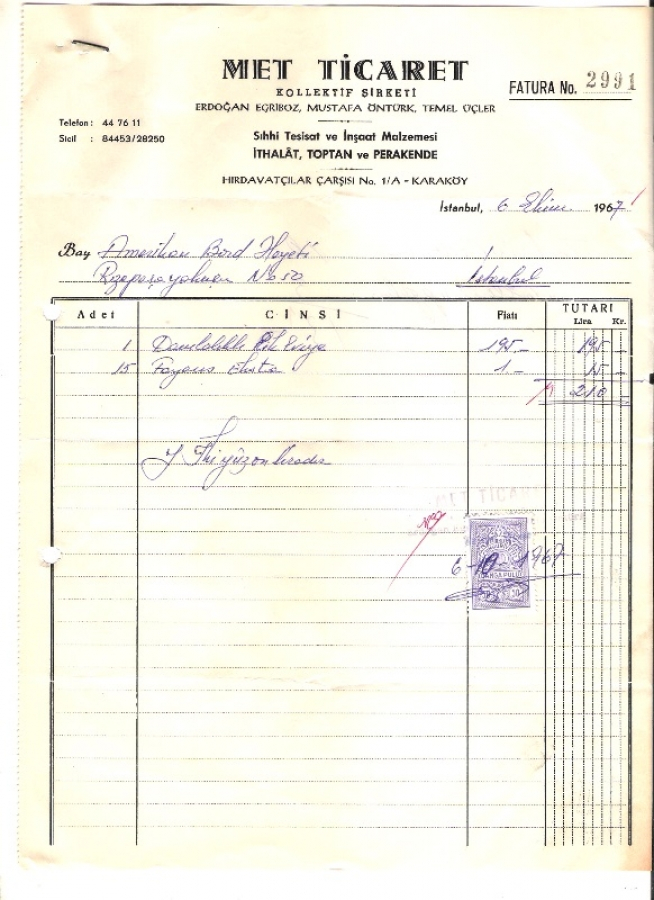 MET TİCARET
KOLLEKTİF ŞİRKETİ
ERDOĞAN EĞRİBOZ, MUSTAFA ÖNTÜRK, TEMEL ÜÇLER
FATURA No. 2991
Telefon : 44 76 11
Sicil : 84453/28250
Sıhhi Tesisat ve İnşaat Malzemesi
İTHALÂT, TOPTAN ve PERAKENDE
HIRDAVATÇILAR ÇARŞISI No. 1/A - KARAKÖY
İstanbul, 6 Ekim 1967
Bay Amerikan Bord Heyeti
Rızapaşa yokuşu No 50 İstanbul
Adet CİNSİ Fiatı TUTARI
Lira Kr.
1 195- 195 -
15 Fayans 1- 15 -
210 -
Y. İkiyüzon liradır
MET TİCARET
6-10-1967